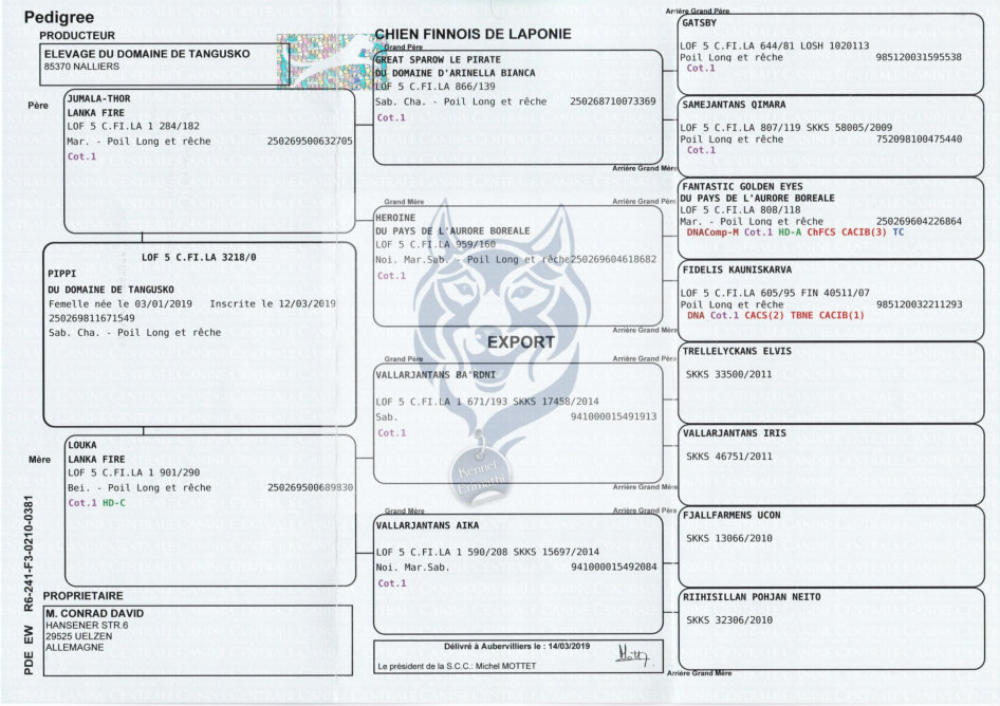 Pedigree
PRODUCTEUR
ELEVAGE DU DOMAINE DE TANGUSKO
85370 NALLIERS
CHIEN FINNOIS DE LAPONIE
Père
JUMALA-THOR
LANKA FIRE
LOF 5 C.FI.LA 1 284/182
Mar. - Poil Long et rêche 250269500632705
Cot.1
LOF 5 C.FI.LA 3218/0
PIPPI
DU DOMAINE DE TANGUSKO
Femelle née le 03/01/2019 Inscrite le 12/03/2019
250269811671549
Sab. Cha. - Poil Long et rêche
Mère
LOUKA
LANKA FIRE
LOF 5 C.FI.LA 1 901/290
Bei. - Poil Long et rêche 250269500689830
Cot.1 HD-C
PROPRIETAIRE
M. CONRAD DAVID
HANSENER STR.6
29525 UELZEN
ALLEMAGNE
PDE EW R6-241-F3-02210-0381
Grand Père
GREAT SPAROW LE PIRATE
DU DOMAINE D'ARINELLA BIANCA
LOF 5 C.FI.LA 866/139
Sab. Cha. - Poil Long et rêche 250268710073369
Cot.1
Grand Mère
HEROINE
DU PAYS DE L'AURORE BOREALE
LOF 5 C.FI.LA 959/160
Noi. Mar.Sab. - Poil Long et rêche250269604618682
Cot.1
EXPORT
Grand Père
VALLARJANTANS BA'RDNI
LOF 5 C.FI.LA 1 671/193 SKKS 17458/2014
Sab. 941000015491913
Cot.1
Kennel
Grand Mère
VALLARJANTANS AIKA
LOF 5 C.FI.LA 1 590/208 SKKS 15697/2014
Noi. Mar.Sab. 941000015492084
Cot.1
Délivré à Aubervilliers le : 14/03/2019
Le président de la S.C.C.: Michel MOTTET
Arrière Grand Père
GATSBY
LOF 5 C.FI.LA 644/81 LOSH 1020113
Poil Long et rêche 985120031595538
Cot.1
SAMEJANTANS QIMARA
LOF 5 C.FI.LA 807/119 SKKS 58005/2009
Poil Long et rêche 752098100475440
Cot.1
Arrière Grand Mère
Arrière Grand Père
FANTASTIC GOLDEN EYES
DU PAYS DE L'AURORE BOREALE
LOF 5 C.FI.LA 808/118
Mar. - Poil Long et rêche 250269604226864
DNAComp-M Cot.1 HD-A ChFCS CACIB(3) TC
FIDELIS KAUNISKARVA
LOF 5 C.FI.LA 605/95 FIN 40511/07
Poil Long et rêche 985120032211293
DNA Cot.1 CACS(2) TBNE CACIB(1)
Arrière Grand Mère
Arrière Grand Père
TRELLELYCKANS ELVIS
SKKS 33500/2011
VALLARJANTANS IRIS
SKKS 46751/2011
Arrière Grand Mère
Arrière Grand Père
FJALLFARMENS UCON
SKKS 13066/2010
RIIHISILLAN POHJAN NEITO
SKKS 32306/2010
Arrière Grand Mère